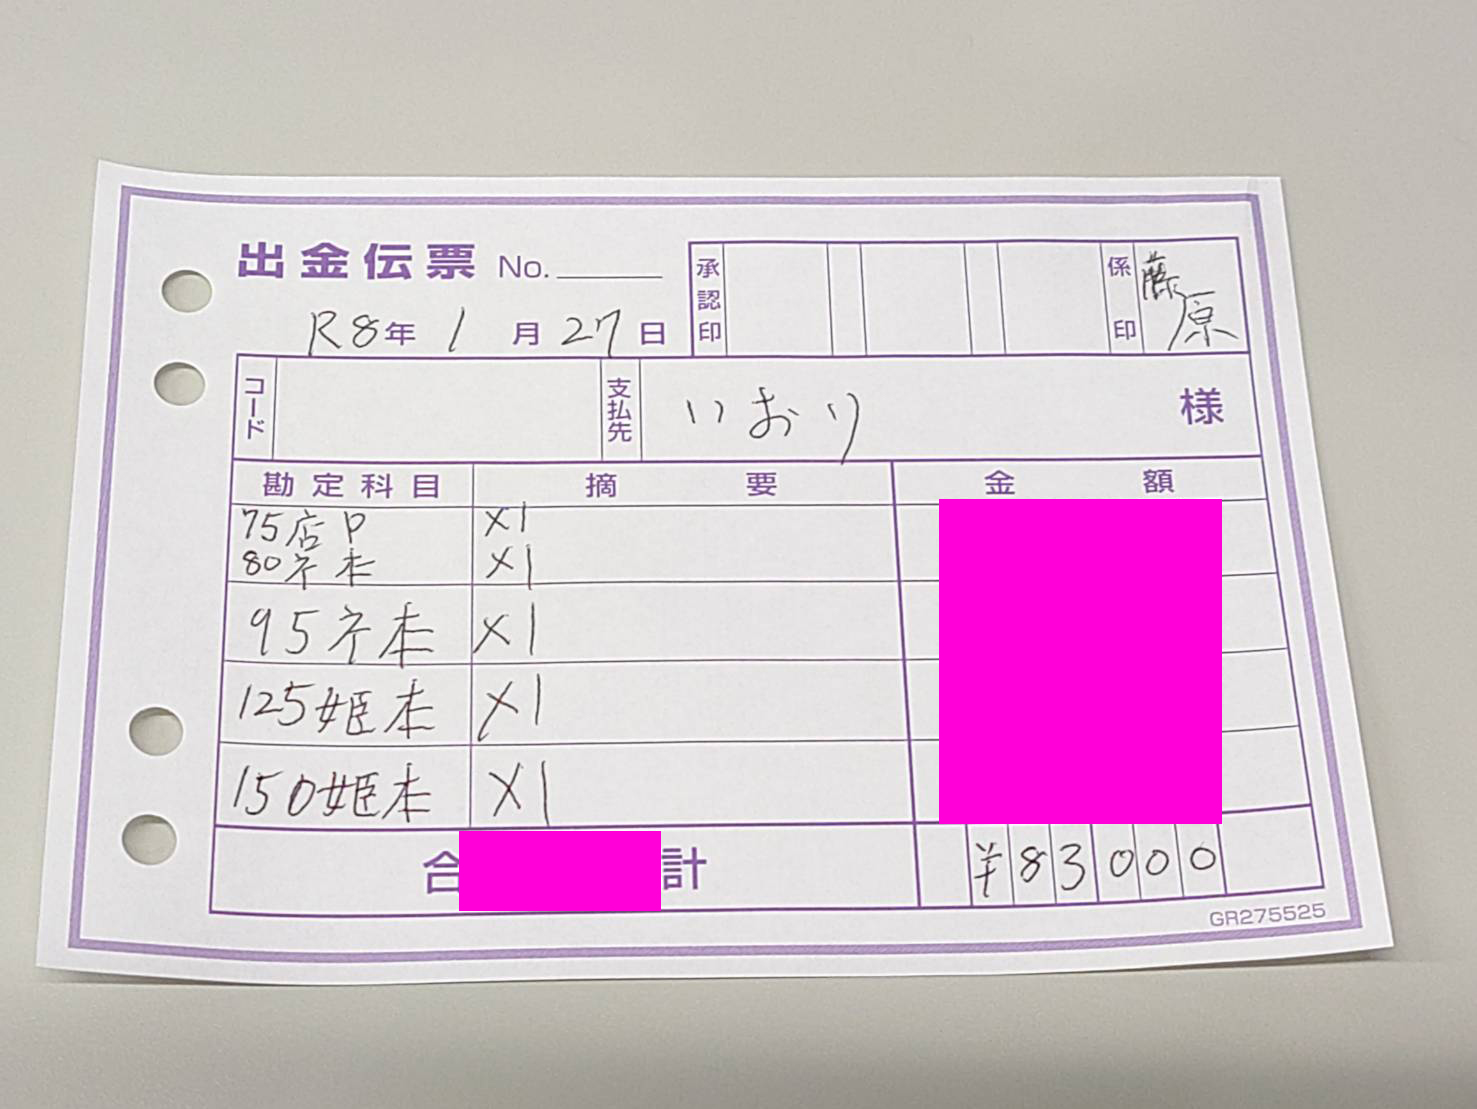 出金伝票 No.
承認印 係印 藤原
R8年 1月 27日
コード 支払先 いおり 様
勘定科目 摘要 金額
75店P ×1
80ネ本 ×1
95ネ本 ×1
125姫本 ×1
150姫本 ×1
合計 ¥83000
GR275525